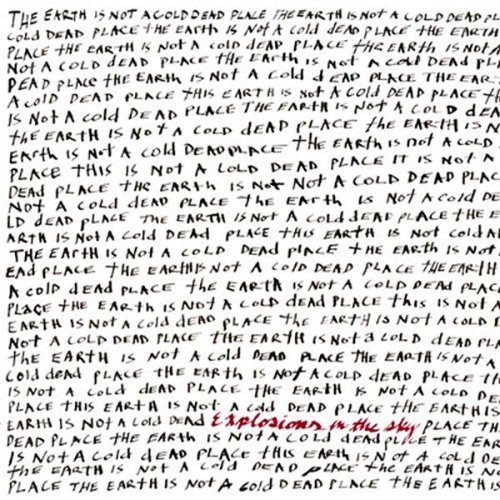 THE EARTH IS NOT A COLD DEAD PLACE THE EARTH IS NOT A COLD DEAD PL
COLD DEAD PLACE THE EARTH IS NOT A COLD DEAD PLACE THE EARTH
PLACE THE EARTH IS NOT A COLD DEAD PLACE THE EARTH IS NOT
NOT A COLD DEAD PLACE THE EARTH IS NOT A COLD DEAD PL
DEAD PLACE THE EARTH IS NOT A COLD DEAD PLACE THE EAR
A COLD DEAD PLACE THIS EARTH IS NOT A COLD DEAD PLACE
IS NOT A COLD DEAD PLACE THE EARTH IS NOT A COLD DEA
THE EARTH IS NOT A COLD DEAD PLACE THE EARTH IS N
EARTH IS NOT A COLD DEAD PLACE THE EARTH IS NOT A COLD
PLACE THIS IS NOT A COLD DEAD PLACE IT IS NOT A
DEAD PLACE THE EARTH IS NOT NOT A COLD DEAD PLAC
NOT A COLD DEAD PLACE THE EARTH IS NOT A COLD DE
LD DEAD PLACE THE EARTH IS NOT A COLD DEAD PLACE THE E
ARTH IS NOT A COLD DEAD PLACE THIS EARTH IS NOT COLD A
THE EARTH IS NOT A COLD DEAD PLACE THE EARTH IS NOT
EAD PLACE THE EARTH IS NOT A COLD DEAD PLACE THE EARTH
A COLD DEAD PLACE THE EARTH IS NOT A COLD DEAD PLAC
PLACE THE EARTH IS NOT A COLD DEAD PLACE THIS IS NOT A
EARTH IS NOT A COLD DEAD PLACE THE EARTH IS NOT A COLD
NOT A COLD DEAD PLACE THE EARTH IS NOT A COLD DEAD PL
THE EARTH IS NOT A COLD DEAD PLACE THE EARTH IS NOT A
COLD DEAD PLACE THE EARTH IS NOT A COLD DEAD PLACE TH
IS NOT A COLD DEAD PLACE THE EARTH IS NOT A COLD DE
PLACE THIS EARTH IS NOT A COLD DEAD PLACE THE EARTH IS
EARTH IS NOT A COLD DEAD Explosions in the sky PLACE TH
DEAD PLACE THE EARTH IS NOT A COLD DEAD PLACE THE EAR
IS NOT A COLD DEAD PLACE THIS EARTH IS NOT A COLD DEA
THE EARTH IS NOT A COLD DEAD PLACE THE EARTH IS N
PLACE THE EARTH IS NOT A COLD DEAD PLACE THE EARTH IS